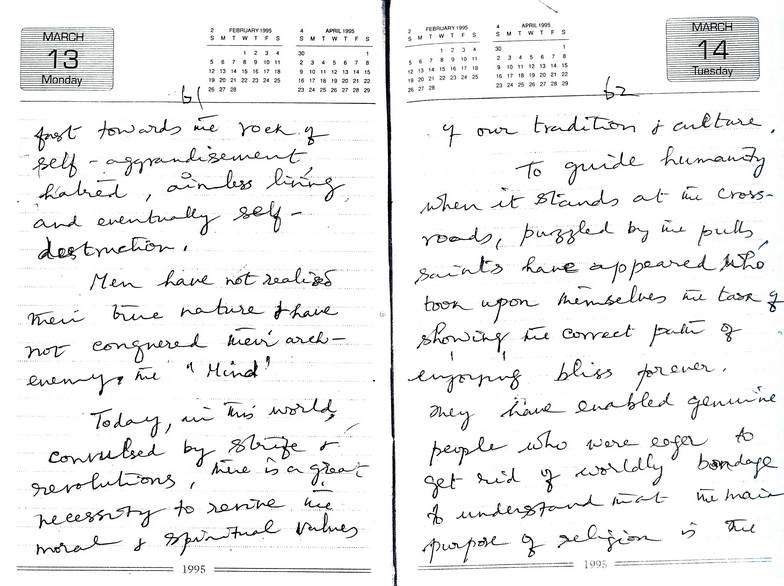 MARCH
13
Monday
2 FEBRUARY 1995
S M T W T F S
1 2 3 4
5 6 7 8 9 10 11
12 13 14 15 16 17 18
19 20 21 22 23 24 25
26 27 28
4 APRIL 1995
S M T W T F S
30 1
2 3 4 5 6 7 8
9 10 11 12 13 14 15
16 17 18 19 20 21 22
23 24 25 26 27 28 29
61
fast towards the rock of
self-aggrandisement,
hatred, aimless living,
and eventually self-
destruction.
Men have not realised
their true nature & have
not conquered their arch-
enemy, the "Mind"
Today, in this world,
convulsed by strife &
revolutions, there is a great
necessity to revive the
moral & spiritual values
1995
2 FEBRUARY 1995
S M T W T F S
1 2 3 4
5 6 7 8 9 10 11
12 13 14 15 16 17 18
19 20 21 22 23 24 25
26 27 28
4 APRIL 1995
S M T W T F S
30 1
2 3 4 5 6 7 8
9 10 11 12 13 14 15
16 17 18 19 20 21 22
23 24 25 26 27 28 29
MARCH
14
Tuesday
62
of our tradition & culture.
To guide humanity
when it stands at the cross-
roads, puzzled by the pulls,
saints have appeared who
took upon themselves the task of
showing the correct path of
enjoying bliss forever.
They have enabled genuine
people who were eager to
get rid of worldly bondage
to understand that the main
purpose of religion is the
1995